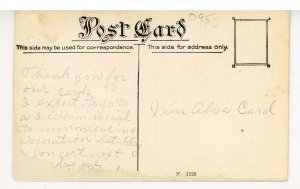 095
Post Card
This side may be used for correspondence.
This side for address only.
Thank you for
our cards
I expect to go to
a Icecream social
tomorrow evening
Decoration Saturday
concert next
Miss Alva Card
N 1228